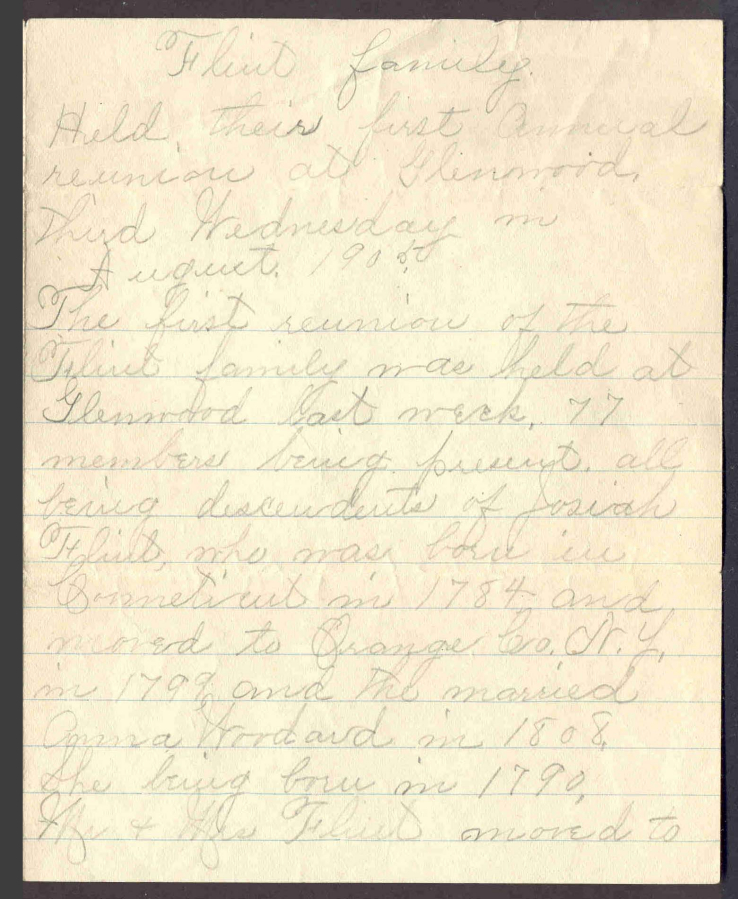 Flint family.
Held their first Annual
reunion at Glenwood,
third Wednesday in
August. 1905
The first reunion of the
Flint family was held at
Glenwood last week, 77
members being present. all
being descendents of Josiah
Flint, who was born in
Conneticut in 1784 and
moved to Orange Co. N.Y.
in 1799 and the married
Anna Woodard in 1808,
She being born in 1790,
Mr + Mrs Flint moved to